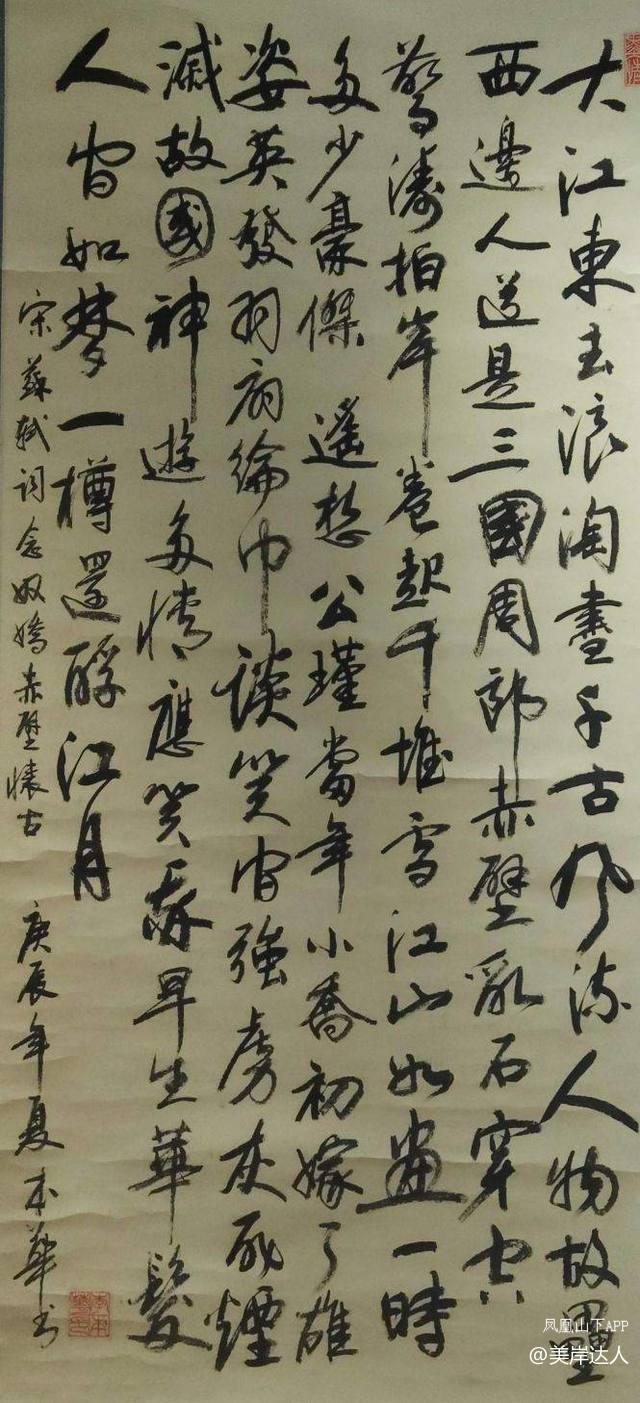 大江東去浪淘盡千古風流人物故壘
西邊人道是三國周郎赤壁亂石穿空
驚濤拍岸卷起千堆雪江山如畫一時
多少豪傑遙想公瑾當年小喬初嫁了雄
姿英發羽扇綸巾談笑間強虜灰飛煙
滅故國神遊多情應笑我早生華髮
人間如夢一樽還酹江月
宋蘇軾詞念奴嬌赤壁懷古 庚辰年夏本華书
凤凰山下APP
@美岸达人